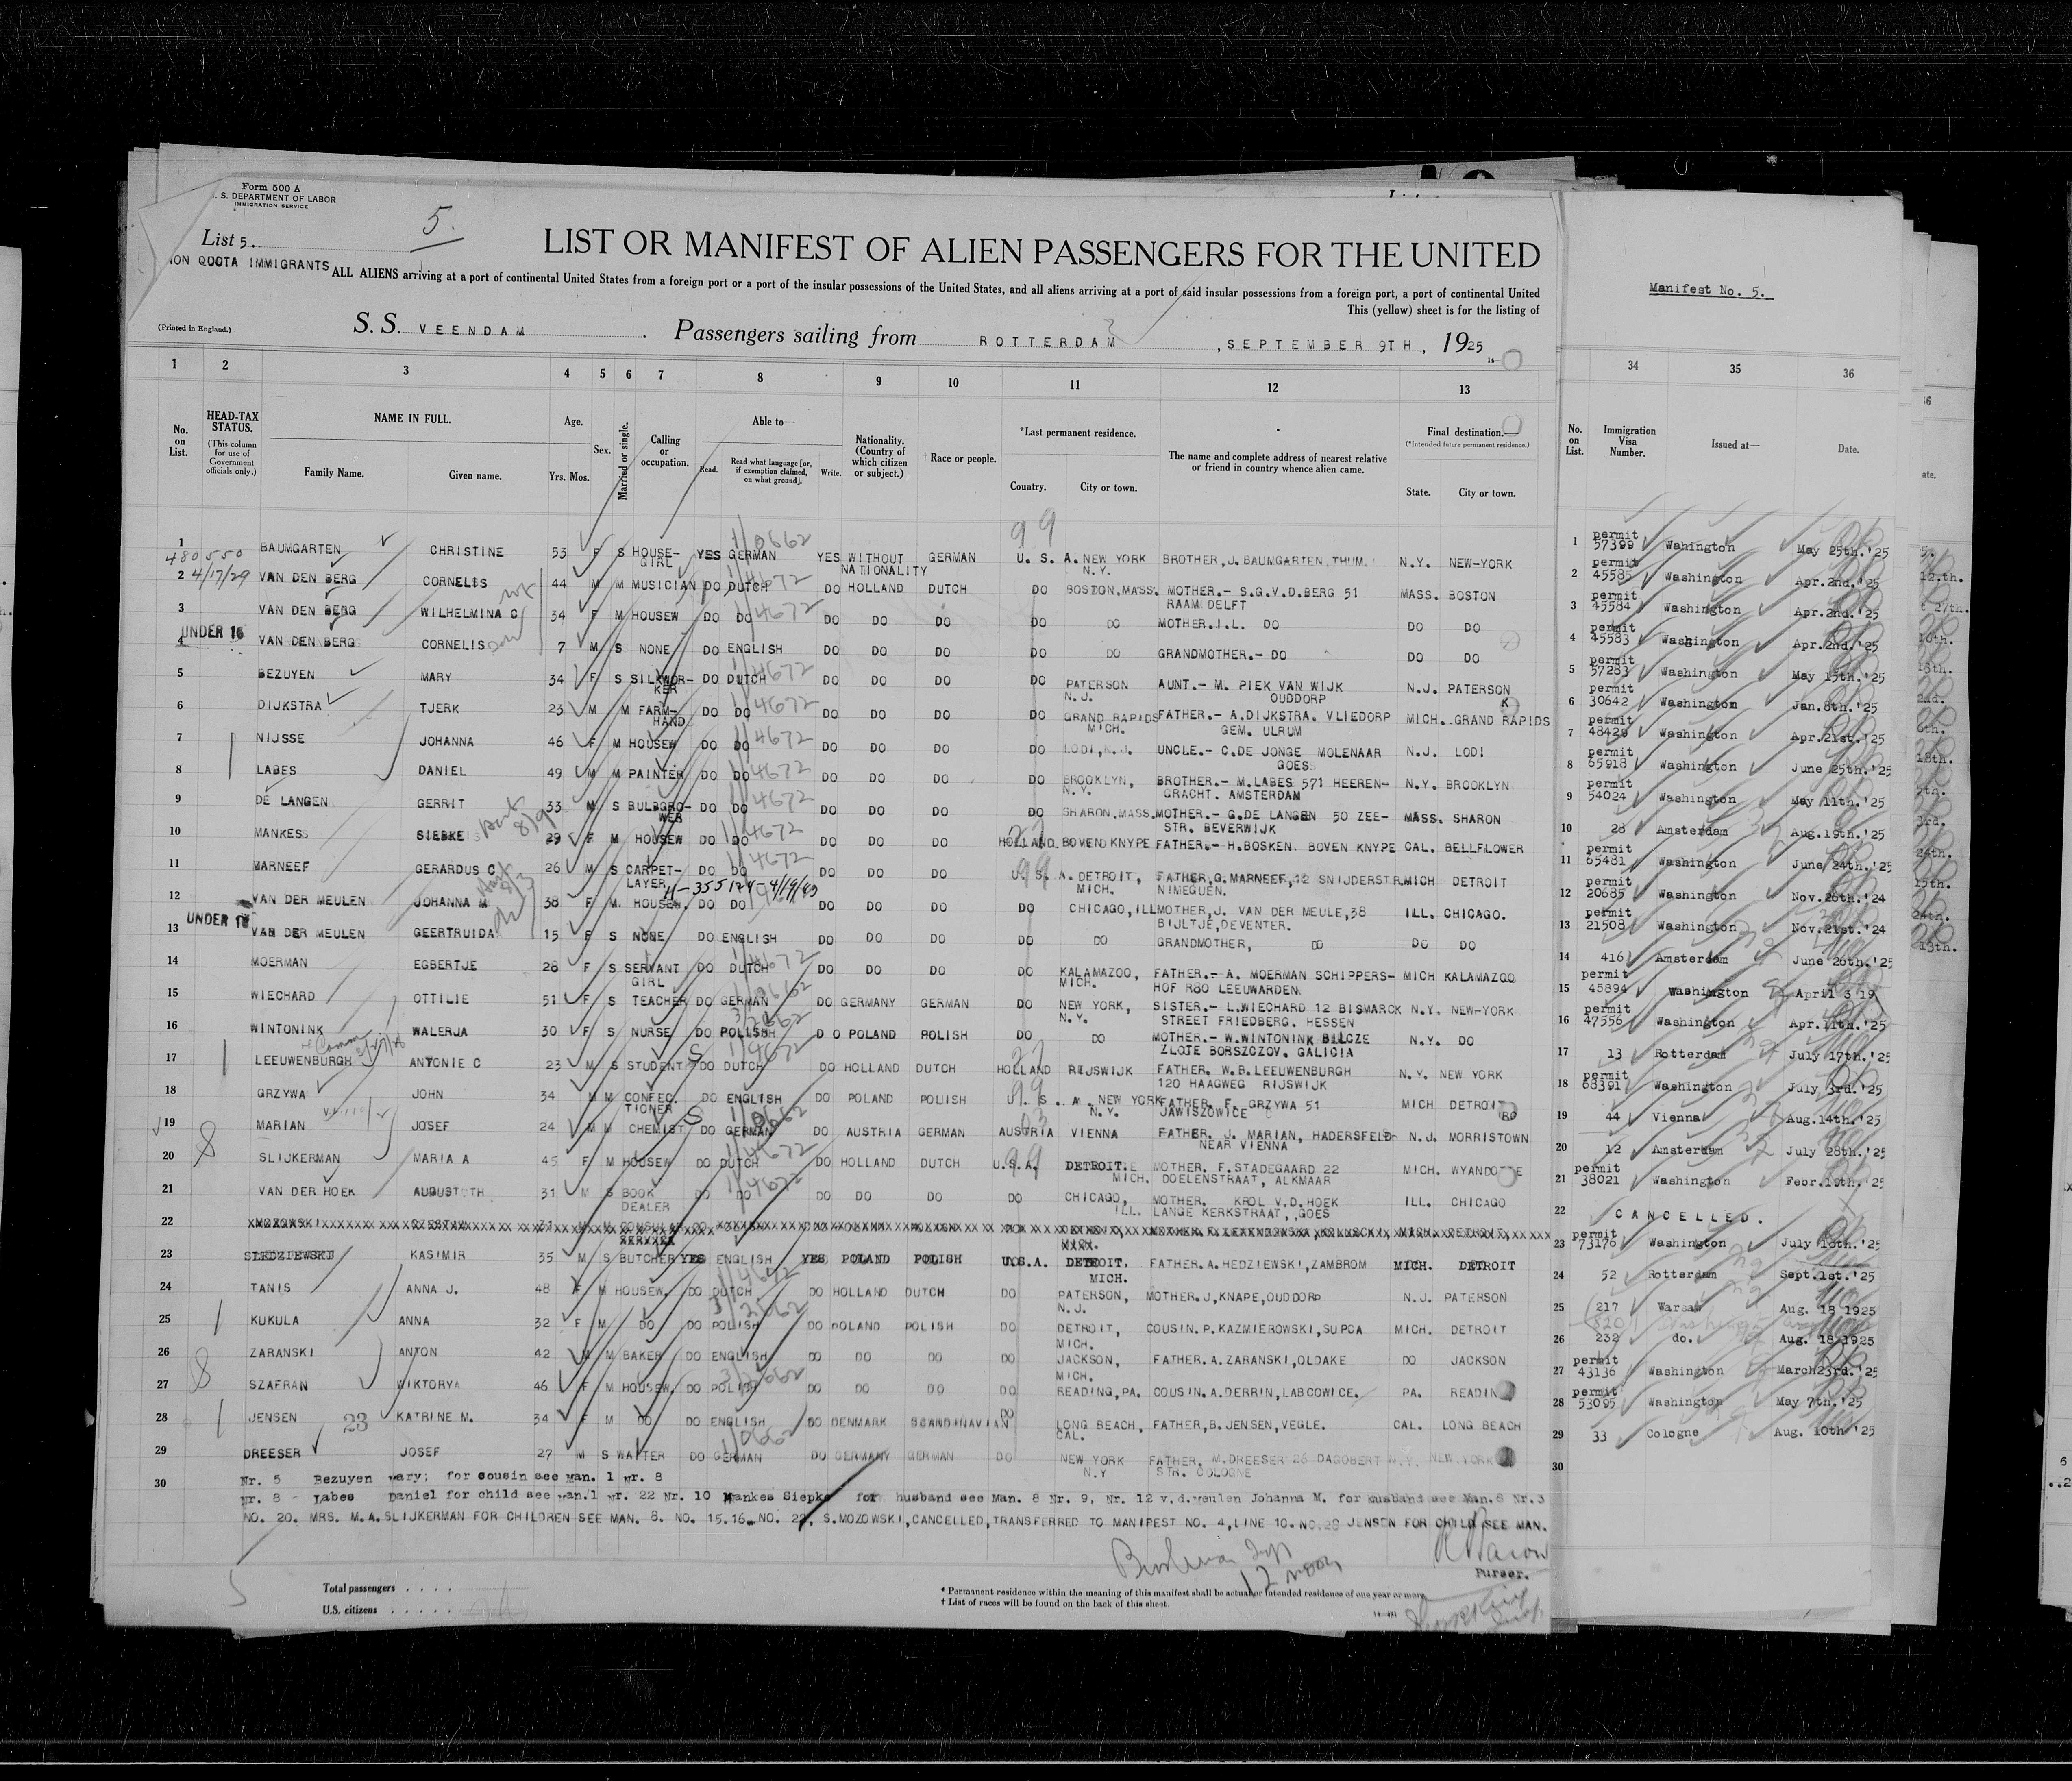 Form 500 A
. S. DEPARTMENT OF LABOR
IMMIGRATION SERVICE
List 5.
5.
LIST OR MANIFEST OF ALIEN PASSENGERS FOR THE UNITED
ION QUOTA IMMIGRANTS
ALL ALIENS arriving at a port of continental United States from a foreign port or a port of the insular possessions of the United States, and all aliens arriving at a port of said insular possessions from a foreign port, a port of continental United
This (yellow) sheet is for the listing of
(Printed in England.)
S. S. VEENDAM Passengers sailing from ROTTERDAM, SEPTEMBER 9TH, 1925
Manifest No. 5.
1 2 3 4 5 6 7 8 9 10 11 12 13 34 35 36
No. on List. HEAD-TAX STATUS. (This column for use of Government officials only.) NAME IN FULL. Family Name. Given name. Age. Yrs. Mos. Sex. Married or single. Calling or occupation. Able to— Read. Read what language [or, if exemption claimed, on what ground]. Write. Nationality. (Country of which citizen or subject.) † Race or people. *Last permanent residence. Country. City or town. The name and complete address of nearest relative or friend in country whence alien came. Final destination. (*Intended future permanent residence.) State. City or town.
No. on List. Immigration Visa Number. Issued at— Date.
1 BAUMGARTEN CHRISTINE 53 F S HOUSE-GIRL YES GERMAN YES WITHOUT NATIONALITY GERMAN U. S. A. NEW YORK N.Y. BROTHER, J. BAUMGARTEN, THUM. N.Y. NEW-YORK 1 permit 57399 Wahington May 25th.'25
480550
2 4/17/29 VAN DEN BERG CORNELIS 44 M M MUSICIAN DO DUTCH DO HOLLAND DUTCH DO BOSTON, MASS. MOTHER.- S.G.V.D.BERG 51 RAAM DELFT MASS. BOSTON 2 permit 45585 Washington Apr.2nd.'25
3 VAN DEN BERG WILHELMINA C 34 F M HOUSEW DO DO DO DO DO DO DO MOTHER.I.L. DO DO DO 3 permit 45584 Washington Apr.2nd.'25
UNDER 16
4 VAN DEN BERG CORNELIS 7 M S NONE DO ENGLISH DO DO DO DO DO GRANDMOTHER.- DO DO DO 4 permit 45583 Washington Apr.2nd.'25
5 BEZUYEN MARY 34 F S SILKWOR-KER DO DUTCH DO DO DO DO PATERSON N.J. AUNT.- M. PIEK VAN WIJK OUDDORP N.J. PATERSON 5 permit 57283 Washington May 15th.'25
6 DIJKSTRA TJERK 23 M M FARM-HAND DO DO DO DO DO DO GRAND RAPIDS MICH. FATHER.- A.DIJKSTRA. VLIEDORP GEM. ULRUM MICH. GRAND RAPIDS 6 permit 30642 Washington Jan.8th.'25
7 NIJSSE JOHANNA 46 F M HOUSEW DO DO DO DO DO DO LODI, N.J. UNCLE.- C.DE JONGE MOLENAAR GOES N.J. LODI 7 permit 48429 Washington Apr.21st.'25
8 LABES DANIEL 49 M M PAINTER DO DO DO DO DO DO BROOKLYN, N.Y. BROTHER.- M.LABES 571 HEEREN-GRACHT. AMSTERDAM N.Y. BROOKLYN 8 permit 65918 Washington June 25th.'25
9 DE LANGEN GERRIT 33 M S BULBGRO-WER DO DO DO DO DO DO SHARON, MASS. MOTHER.- G.DE LANGEN 50 ZEE-STR. BEVERWIJK MASS. SHARON 9 permit 54024 Washington May 11th.'25
10 MANKES SIEBKE 29 F M HOUSEW DO DO DO DO DO HOLLAND. BOVEN KNYPE FATHER.- H.BOSKEN. BOVEN KNYPE CAL. BELLFLOWER 10 28 Amsterdam Aug.19th.'25
11 MARNEEF GERARDUS C 26 M S CARPET-LAYER DO DO DO DO DO U. S. A. DETROIT, MICH. FATHER, G. MARNEEF, 12 SNIJDERSTR. NIMEGUEN. MICH DETROIT 11 permit 65481 Washington June 24th.'25
12 VAN DER MEULEN JOHANNA M 38 F M. HOUSEW. DO DO DO DO DO DO CHICAGO, ILL MOTHER, J. VAN DER MEULE, 38 BIJLTJE, DEVENTER. ILL. CHICAGO. 12 permit 20685 Washington Nov.28th.'24
UNDER 16
13 VAN DER MEULEN GEERTRUIDA 15 F S NONE DO ENGLISH DO DO DO DO DO GRANDMOTHER, DO DO DO 13 permit 21508 Washington Nov.21st.'24
14 MOERMAN EGBERTJE 28 F S SERVANT GIRL DO DUTCH DO DO DO DO KALAMAZOO, MICH. FATHER.- A. MOERMAN SCHIPPERS-HOF R80 LEEUWARDEN MICH KALAMAZOO 14 416 Amsterdam June 26th.'25
15 WIECHARD OTTILIE 51 F S TEACHER DO GERMAN DO GERMANY GERMAN DO NEW YORK, N.Y. SISTER.- L.WIECHARD 12 BISMARCK STREET FRIEDBERG. HESSEN N.Y. NEW-YORK 15 permit 45894 Washington April 3 19
16 WINTONINK WALERJA 30 F S NURSE DO POLISH DO POLAND POLISH DO DO MOTHER.- W.WINTONINK BILCZE ZLOTE BORSZCZOV. GALICIA N.Y. DO 16 permit 47556 Washington Apr.11th.'25
17 LEEUWENBURGH ANTONIE C 23 M S STUDENT DO DUTCH DO HOLLAND DUTCH HOLLAND RIJSWIJK FATHER. W.B.LEEUWENBURGH 120 HAAGWEG RIJSWIJK N.Y. NEW YORK 17 13 Rotterdam July 17th.'25
18 GRZYWA JOHN 34 M M CONFEC. TIONER DO ENGLISH DO POLAND POLISH U. S. A. NEW YORK N.Y. FATHER. F. GRZYWA 51 JAWISZOWICE MICH DETROIT 18 permit 68391 Washington July 3rd.'25
19 MARIAN JOSEF 24 M M CHEMIST DO GERMAN DO AUSTRIA GERMAN AUSTRIA VIENNA FATHER. J. MARIAN, HADERSFELD NEAR VIENNA N.J. MORRISTOWN 19 44 Vienna Aug.14th.'25
20 SLIJKERMAN MARIA A 45 F M HOUSEW DO DUTCH DO HOLLAND DUTCH U.S.A. DETROIT MICH. MOTHER. F.STADEGAARD 22 DOELENSTRAAT, ALKMAAR MICH. WYANDOTTE 20 12 Amsterdam July 28th.'25
21 VAN DER HOEK AUGUST TH. 31 M S BOOK DEALER DO DO DO DO DO DO CHICAGO, ILL. MOTHER. KROL V.D.HOEK LANGE KERKSTRAAT, GOES ILL. CHICAGO 21 permit 38021 Washington
22 MOZOWSKI 22 CANCELLED.
23 SLEDZIEWSKI KASIMIR 35 M S BUTCHER YES ENGLISH YES POLAND POLISH U.S.A. DETROIT. MICH. FATHER. A. HEDZIEWSKI, ZAMBROM MICH. DETROIT 23 permit 73176 Washington July 18th.'25
24 TANIS ANNA J. 48 F M HOUSEW. DO DUTCH DO HOLLAND DUTCH DO PATERSON, N.J. MOTHER. J, KNAPE, OUDDORP N.J. PATERSON 24 52 Rotterdam Sept.1st.'25
25 KUKULA ANNA 32 F M DO DO POLISH DO POLAND POLISH DO DETROIT, MICH. COUSIN. P. KAZMIEROWSKI, SUPCA MICH. DETROIT 25 217 Warsaw Aug. 18 1925
26 ZARANSKI ANTON 42 M M BAKER DO ENGLISH DO DO DO DO JACKSON, MICH. FATHER. A. ZARANSKI, OLDAKE DO JACKSON 26 232 do. Aug. 18 1925
27 SZAFRAN WIKTORYA 46 F M HOUSEW. DO POLISH DO DO DO DO READING, PA. COUSIN. A. DERRIN, LABCOWICE. PA. READIN 27 permit 43136 Washington March23rd.'25
28 JENSEN 23 KATRINE M. 34 F M DO DO ENGLISH DO DENMARK SCANDINAVIAN DO LONG BEACH, CAL. FATHER, B. JENSEN, VEGLE. CAL. LONG BEACH 28 permit 53095 Washington May 7th.'25
29 DREESER JOSEF 27 M S WAITER DO GERMAN DO GERMANY GERMAN DO NEW YORK N.Y FATHER. M.DREESER 26 DAGOBERT STR. COLOGNE N.Y. NEW YORK 29 33 Cologne Aug. 10th '25
30 Nr. 5 Bezuyen Mary; for cousin see Man. 1 Nr. 8 30
Nr. 8 - Labes Daniel for child see Man.1 Nr. 22 Nr. 10 Mankes Siepke for husband see Man. 8 Nr. 9, Nr. 12 v.d.Meulen Johanna M. for husband see Man.8 Nr.3
NO. 20. MRS. M.A.SLIJKERMAN FOR CHILDREN SEE MAN. 8. NO. 15.16. NO. 22, S.MOZOWSKI, CANCELLED, TRANSFERRED TO MANIFEST NO. 4, LINE 10. NO.28 JENSEN FOR CHILD SEE MAN.
12 noon
Purser.
Total passengers . . . .
U.S. citizens . . . . .
* Permanent residence within the meaning of this manifest shall be actual or intended residence of one year or more.
† List of races will be found on the back of this sheet.